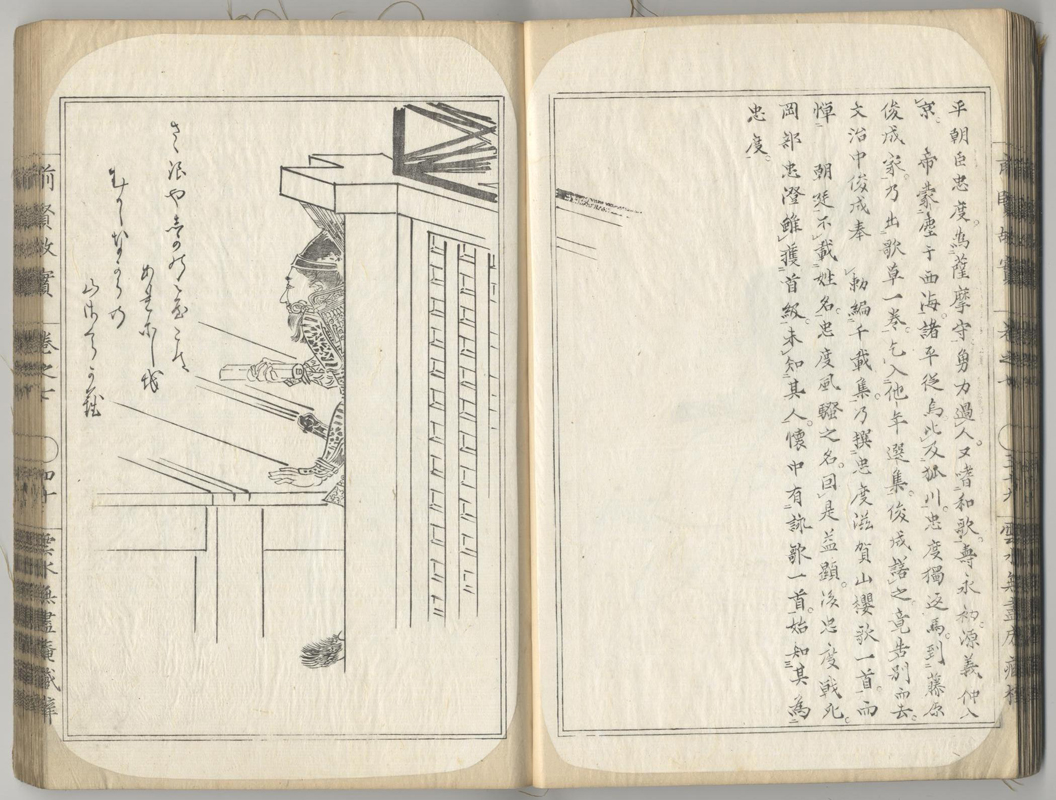 平朝臣忠度。為薩摩守勇力過人。又嗜和歌。壽永初。源義仲入
京。帝蒙塵于西海。諸平從焉。比及狐川。忠度獨返馬。到藤原
俊成家。乃出歌草一卷。乞入他年選集。俊成諾之。竟告別而去。
文治中俊成奉　勅編千載集。乃撰忠度滋賀山櫻歌一首。而
憚　朝廷。不載姓名。忠度風騷之名。因是益顯。後忠度戰死。
岡部忠澄雖獲首級。未知其人。懷中有詠歌一首。始知其為
忠度。
さゝ浪や志賀の
あれにし
むかしなからの
山さくら
前賢故實
卷之七
四十
雲水無盡庵藏梓